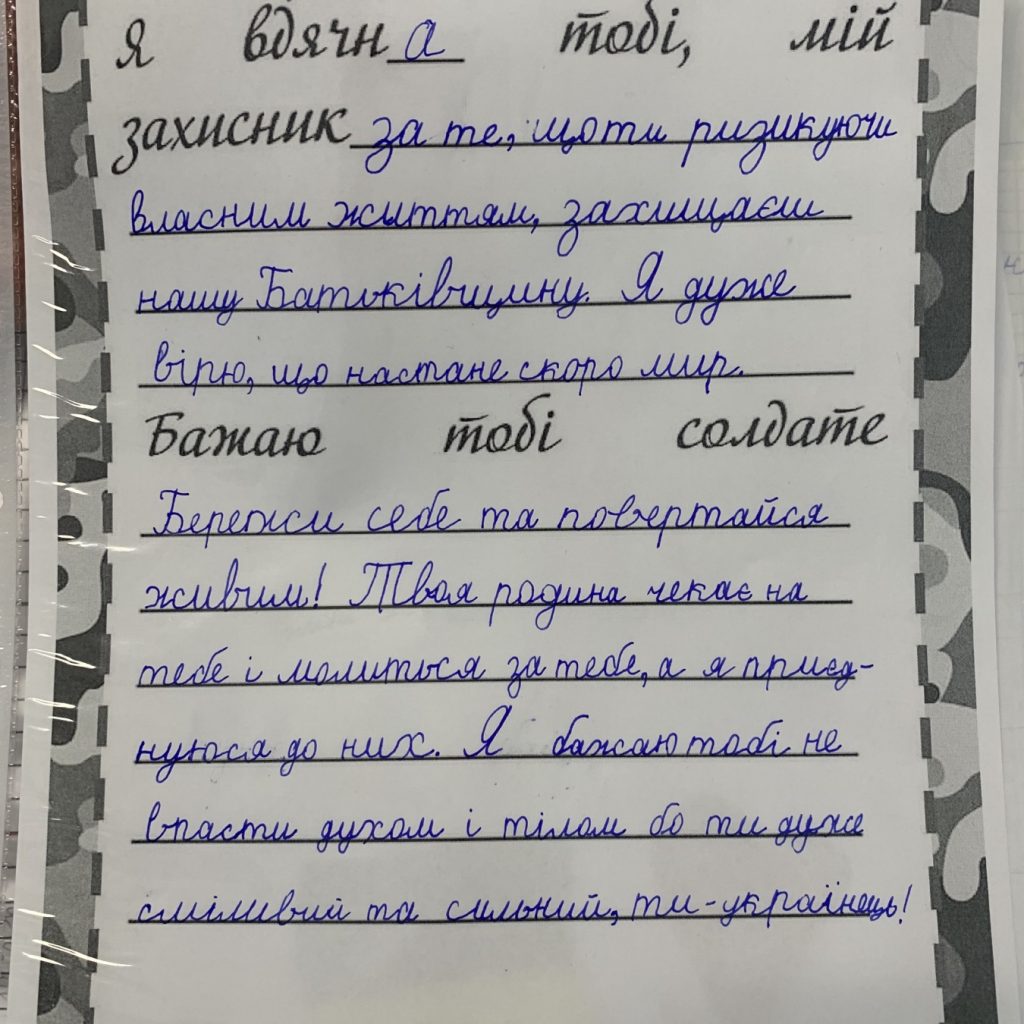 Я вдячна тобі, мій
захисник за те, що ти ризикуючи
власним життям, захищаєш
нашу Батьківщину. Я дуже
вірю, що настане скоро мир.
Бажаю тобі солдате
Бережи себе та повертайся
живим! Твоя родина чекає на
тебе і молиться за тебе, а я приєд-
нуюся до них. Я бажаю тобі не
впасти духом і тілом бо ти дуже
сміливий та сильний, ти - українець!